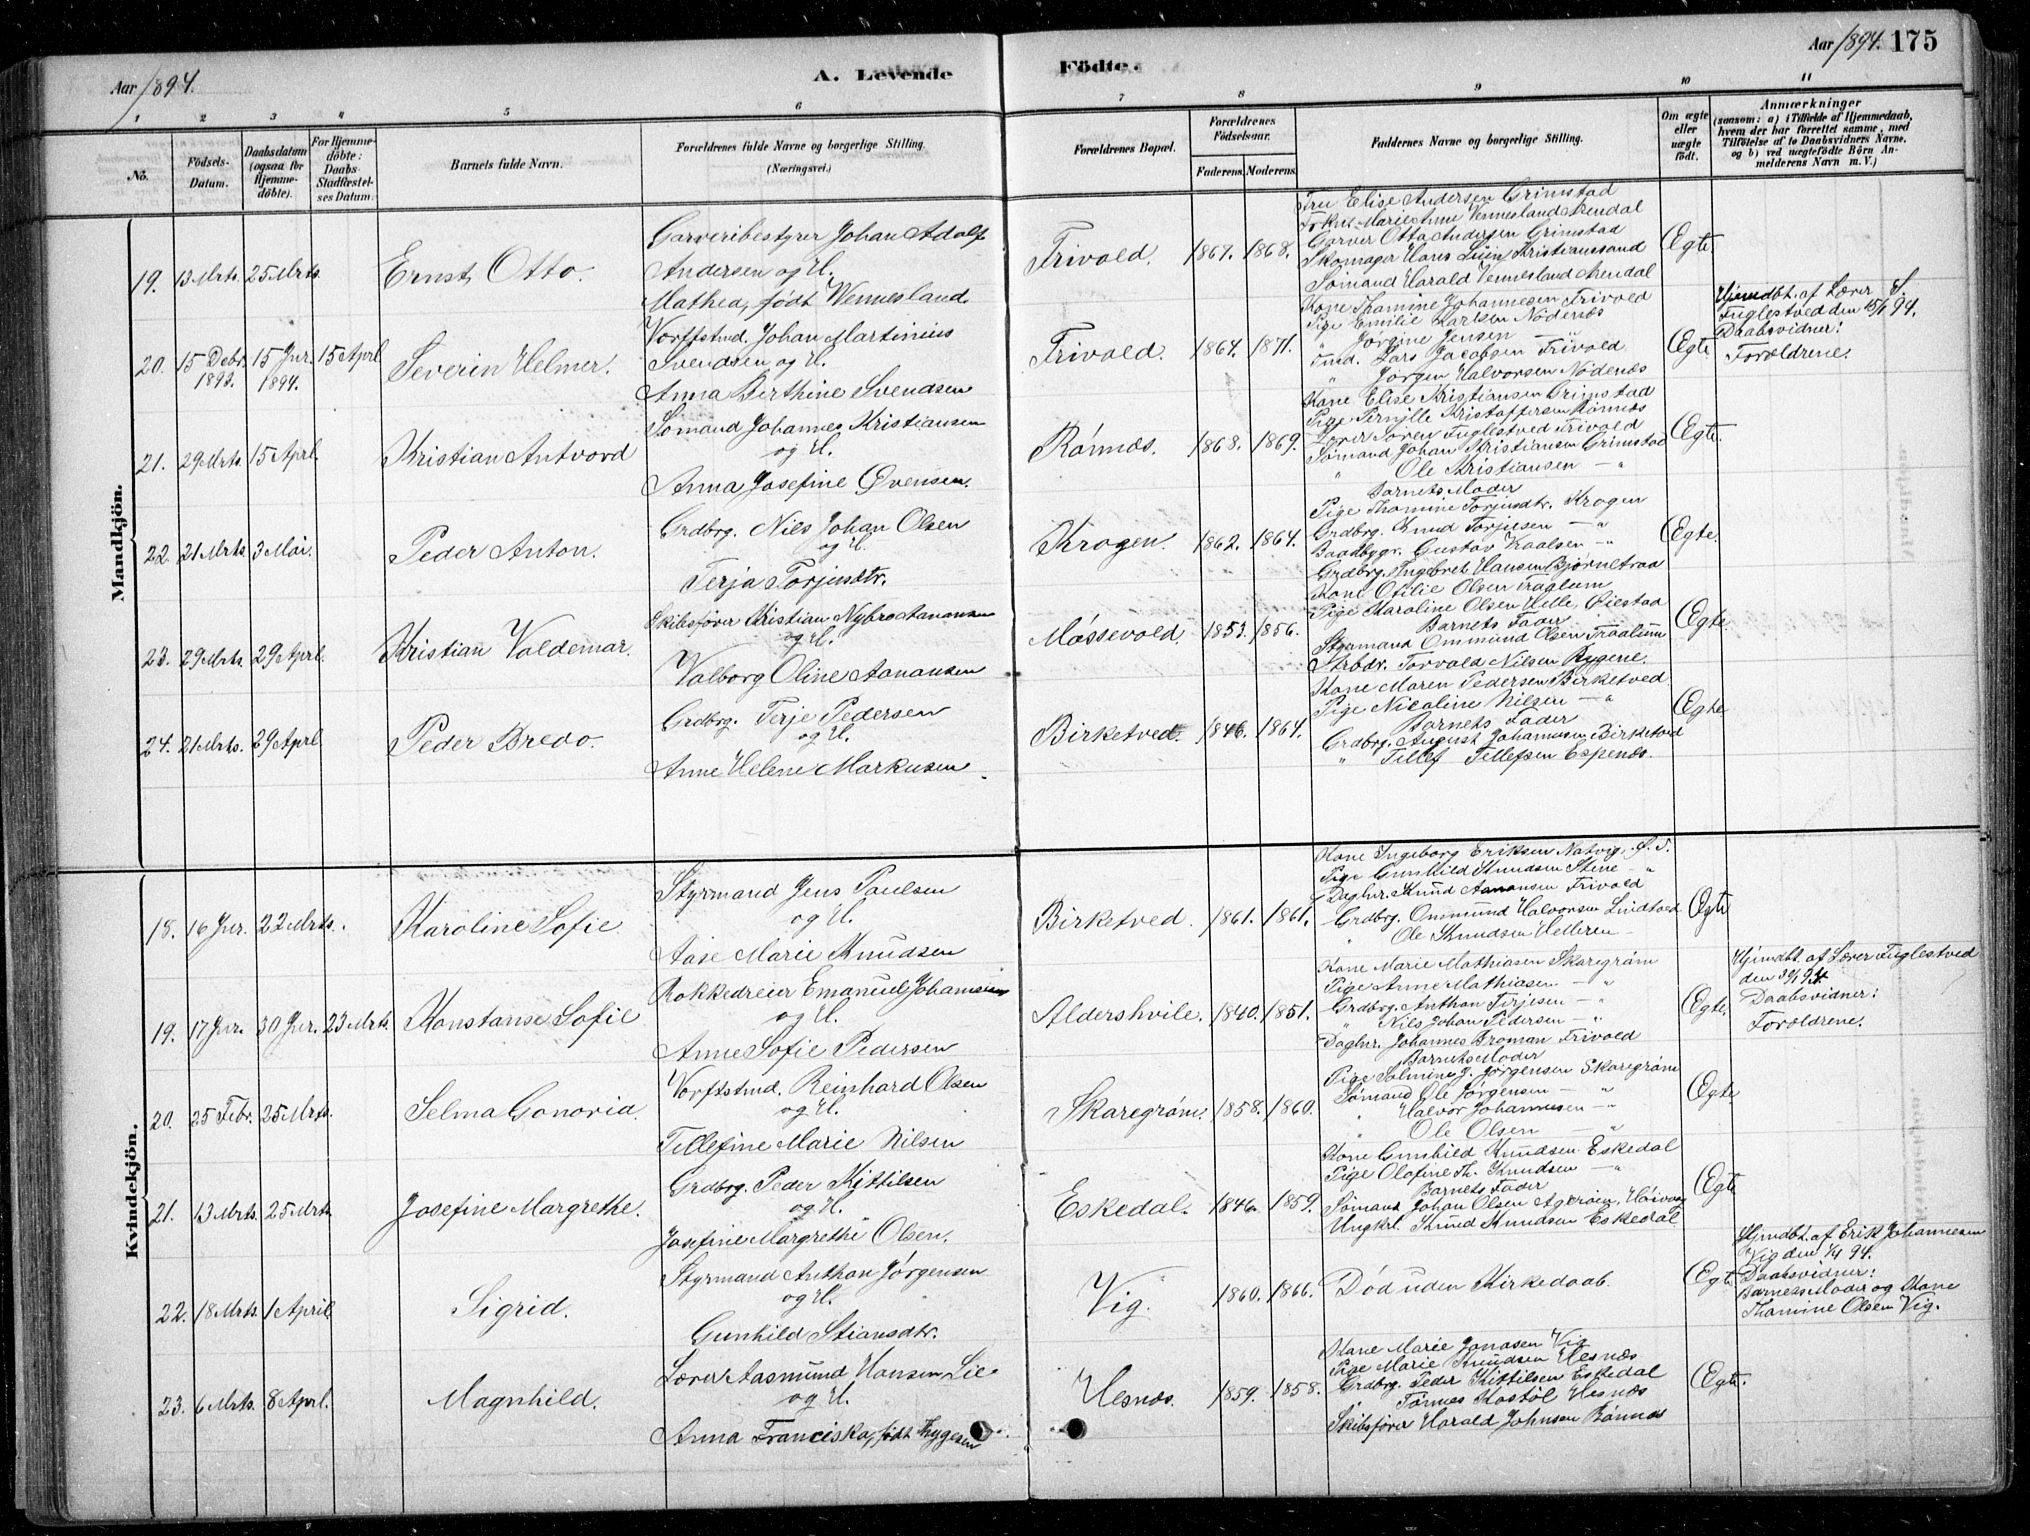 Aar 1894.
A. Levende
Födte.
Aar 1894. 175
1 2 3 4 5 6 7 8 9 10 11
No.
Födsels-Datum.
Daabsdatum (ogsaa for Hjemme-döbte).
For Hjemme-döbte: Daabs-Stadfæstel-ses Datum.
Barnets fulde Navn.
Forældrenes fulde Navne og borgerlige Stilling.
(Næringsvei.)
Forældrenes Bopæl.
Forældrenes Födselsaar.
Faderens. Moderens.
Faddernes Navne og borgerlige Stilling.
Om ægte eller uægte födt.
Anmærkninger
(saasom: a) i Tilfælde af Hjemmedaab,
hvem der har forrettet samme, med
Tilföielse af to Daabsvidners Navne,
og b) ved uægtefödte Börn An-
melderens Navn m. V.)
Mandkjön.
19. 13 Mrts. 25 Mrts. Ernst Otto.
Garveribestyrer Johan Adolf
Andersen og H.
Mathea, født Vennesland.
Frivold. 1867. 1868.
Fru Elise Andersen Grimstad
Frkn. Marie Anne Vennesland Arendal
Garver Otto Andersen Grimstad
Skomager Hans Kristianssand
Sømand Harald Vennesland Arendal
Ægte.
20. 15 Debr. 1893. 15 Jnr. 1894. 15 Aprl. Severin Helmer.
Vorftstmd. Johan Martinius
Svendsen og H.
Anna Berthine Svendsen
Frivold. 1864. 1871.
Kone Thamine Johannesen Frivold
Pige Emilie Karlsen Nødenæs
" Jorgine Jensen "
Tmd. Lars Jacobsen Frivold
" Jørgen Halvorsen Nødenæs
Ægte
Hjemdbt. af Lærer S.
Fuglestved den 15/1 94.
Daabsvidner:
Forældrene.
21. 29 Mrts. 15 Aprl. Kristian Antvord
Sømand Johannes Kristiansen
og H.
Anna Josefine Øvensen.
Rønnæs. 1868. 1869.
Kone Elise Kristiansen Grimstad
Pige Pernille Kristoffersen Rønnæs
Lærer Søren Fuglestved Frivold
Sømand Johan Kristiansen Grimstad
" Ole Kristiansen — "
Ægte.
22. 21 Mrts. 3 Mai. Peder Anton.
Grdbrg. Nils Johan Olsen
og H.
Terja Torjusdtr.
Krogen. 1862. 1864.
Barnets Moder
Pige Thamine Torjusdtr. Krogen
Grdbrg. Knud Torjusen — "
Baadbygr. Gustav Kaalsen — "
Grdbrg. Ingebret Hansen Bjørnetraa
Ægte.
23. 29 Mrts. 29 Aprl. Kristian Valdemar.
Skibsfører Kristian Nybro Aanonsen
og H.
Valborg Oline Aanonsen
Møssevold 1853. 1856.
Kone Otilie Olsen Traglum
Pige Karoline Olsen Helle, Øiestad
Barnets Fader
Styrmand Ommund Olsen
Arbdr. Torvald Nilsen Rygene.
Ægte.
24. 21 Mrts. 29 Aprl. Peder Bredo.
Grdbrg. Terje Pedersen
og H.
Anne Helene Markusen.
Birketved. 1846. 1864.
Kone Maren Pedersen Birketved
Pige Nicoline Nilsen — "
Barnets Fader
Grdbrg. August Johannesen Birketved
" Tellef Tellefsen Espenæs.
Ægte
Kvindekjön.
18. 16 Jnr. 22 Mrts. Karoline Sofie.
Styrmand Jens Paulsen
og H.
Aase Marie Knudsen
Birketved. 1861. 1861.
Kone Ingeborg Eriksen Natvig,
Pige Gunhild Knudsen Stine — "
Daglnr. Knud Aanonsen Frivold
Grdbrg. Ommund Halvorsen Lindtved
" Ole Knudsen Helleren —
Ægte
19. 17 Jnr. 30 Jnr. 23 Mrts. Konstanse Sofie
Rokkedreier Emanuel Johannesen
og H.
Anne Sofie Pedersen
Aldershvile. 1840. 1851.
Kone Marie Mathiasen Skaregrøm
Pige Anne Mathiasen — "
Grdbrg. Anthon Terjesen — "
" Nils Johan Pedersen — "
Daglnr. Johannes Broman Frivold
Ægte.
Hjemdbt. af Lærer Fuglestved
den 30/1 94.
Daabsvidner:
Forældrene.
20. 25 Febr. 25 Mrts. Selma Gonoria.
Vorftstmd. Reinhard Olsen
og H.
Tellefine Marie Nilsen
Skaregrøm. 1858. 1860.
Barnets Moder
Pige Solmine J. Jørgensen Skaregrøm
Sømand Ole Jørgensen — "
" Halvor Johannesen — "
" Ole Olsen — "
Ægte
21. 13 Mrts. 25 Mrts. Josefine Margrethe.
Grdbrg. Peder Kittilsen
og H.
Josefine Margrethe Olsen.
Eskedal. 1846. 1859.
Kone Gunhild Knudsen Eskedal
Pige Olofine Th. Knudsen — "
Barnets Fader
Sømand Johan Olsen Agerøen, Høivaag
Ungkrl. Knud Knudsen Eskedal
Ægte
22. 18 Mrts. 1 April Sigrid.
Styrmand Anthon Jørgensen
og H.
Gunhild Stiansdtr.
Vig. 1860. 1866. Død uden Kirkedaab.
Ægte
Hjmdbt. af Erik Johannesen
Vig den 1/4 94.
Daabsvidner:
Barnets Moder og Kone
Thamine Olsen Vig.
23. 6 Mrts. 8 Aprl. Magnhild.
Lærer Aasmund Hansen Lie
og H.
Anna Franciska, født Thygesen
Hesnæs. 1859. 1858.
Kone Marie Jonasen Vig
Pige Marie Knudsen Hesnæs
Grdbrg. Peder Kittilsen Eskedal
" Tønnes Kostøl Hesnæs
Skibsfører Harald Johnsen Rønnæs
Ægte.